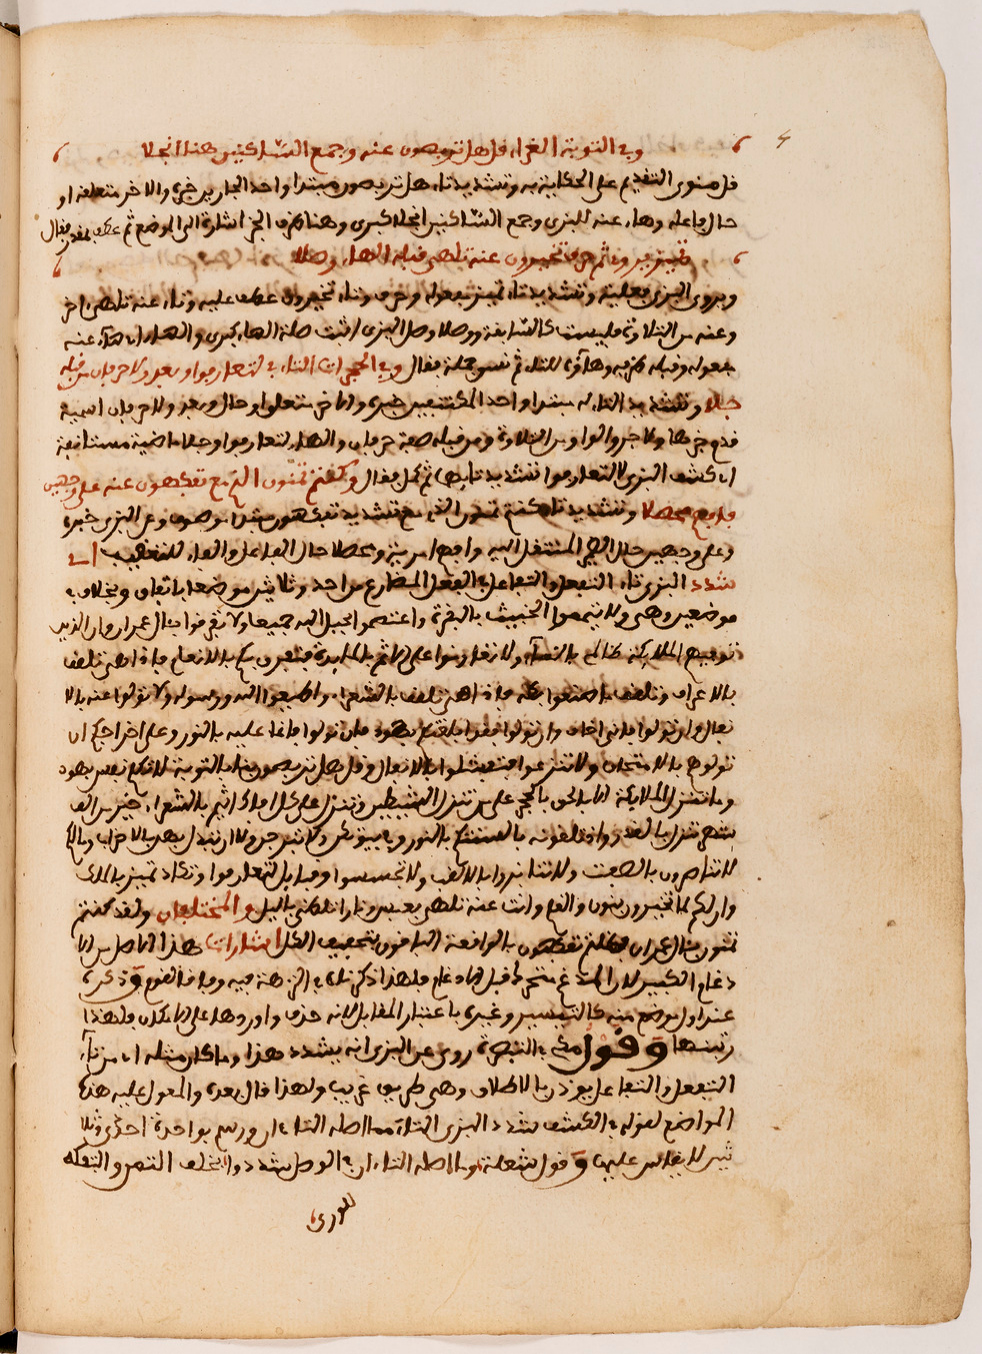 وفي التوبة الغراء قل هل تربصون عنه وجمع الساكنين هنا انجلا
قل منوي التقديم على الحكاية به وتشديد تاء هل تربصون مبتدا واحد الجارين خبره والاخر متعلقه او
حال فاعله وهاء عنه للبزي وجمع الساكنين انجلا كبرى وهنا ظرف الخبر اشارة الى الموضع ثم عطف فقال
تميز يروي ثم حرف تخيرون عنه تلهى قبله الهاء وصلا
ويروي البزي فعلية وتشديد تاء تميز مفعوله وحرف وتاء تخيرون عطف عليه وتاء عنه تلهى اخر
وعنه من التلاوة فليست كالسابقة ووصلا وصل البزي اثبت صلة الهاء كبرى والهاء
مفعوله وقبله ظرفه وهاؤه للتاء ثم تمم جملة فقال وفي الحجرات التاء في لتعارفوا وبعد ولا حرفان من قبله
جلا وتشديد التاء له مبتدا واحد المكتنفين خبره والاخر متعلق او حال وبعد ولا حرفان اسمية
قدم خبرها ولا جر والواو من التلاوة ومن قبله صفة حرفان والهاء لتعارفوا وجلا ماضية مستانفة
اي كشف البزي لا لتعارفوا بتشديد تا ثم كمل فقال وكنتم تمنون الذي مع تفكهون عنه على وجهين
فافهم محصلا وتشديد تاء كنتم تمنون الذي مع تشديد تفكهون مبتدا موصوف وعن البزي خبره
وعلى وجهين حال الضمير المنتقل اليه وافهم امرية ومحصلا حال الفاعل والفاء للتعقيب اي
شدد البزي تاء التفعل والتفاعل في الفعل المضارع من احد وثلاثين موضعا باتفاق وبخلاف في
موضعين وهي ولا تيمموا الخبيث بالبقرة واعتصموا بحبل الله جميعا ولا تفرقوا بال عمران وان الذين
توفيهم الملائكة ظالمي بالنساء ولا تعاونوا على الاثم بالمايدة فتفرق بكم بالانعام فاذا هي تلقف
بالاعراف وتلقف ما صنعوا بطه فاذا هي تلقف بالشعراء واطيعوا الله ورسوله ولا تولوا عنه بالا
نفال وان تولوا فاني اخاف وان تولوا فقد ابلغتكم بهود فان تولوا فانما عليه بالنور وعلى اخراجكم ان
تولوهم بالامتحان ولا تنازعوا فتفشلوا بالانفال وقل هل تربصون بنا بالتوبة لا تكلم نفس بهود
وما تنزل الملائكة الا بالحق بالحجر على من تنزل الشيطين وتنزل على كل افاك اثيم بالشعراء خير من الف
شهر تنزل بالقدر واذ تلقونه بالسنتكم بالنور وفي بيوتكن ولا تبرجن ولا ان تبدل بهن بالاحزاب ومالكم
لا تناصرون بالصافات ولا تنابزوا بالالقب ولا تجسسوا وقبايل لتعارفوا وتكاد تميز بالملك
وان لكم لما تخيرون بنون والقلم وانت عنه تلهى بعبس ونارا تلظى بالليل والمختلفان ولقد كنتم
تمنون بال عمران فظلتم تفكهون بالواقعة الباقون بتخفيف الكل اشارات هذا الاصل من الا
دغام الكبير لان المدغم متحرك قبل الادغام فلهذا ذكرناه في النزهة فيه وفاقا للقوم وذكره
عند اول موضع منه كالتيسير وغيره باعتبار المقابل لانه حذف واوردها على الامكان فلهذا
رتبتها وقول مكي في التبصرة روي عن البزي انه يشدد هذا وما كان مثله اي من تاء
التفعل والتفاعل يوذن بالاطلاق وهي طريق غريب ولهذا قال بعده والمعول عليه هذه
المواضع لقوله في الكشف شدد البزي التاء مما اصله التاءان ورسم بواحدة احدى وثلا
ثين لا يقاس عليها وقول شعلة وما اصله التاءان في الوصل شددوا بخلف التمن والتفكه
للوري